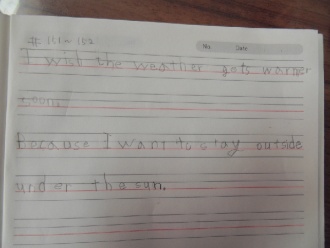 # 161~162
No. Date
I wish the weather gets warmer
soon.
Because I want to stay outside
under the sun.